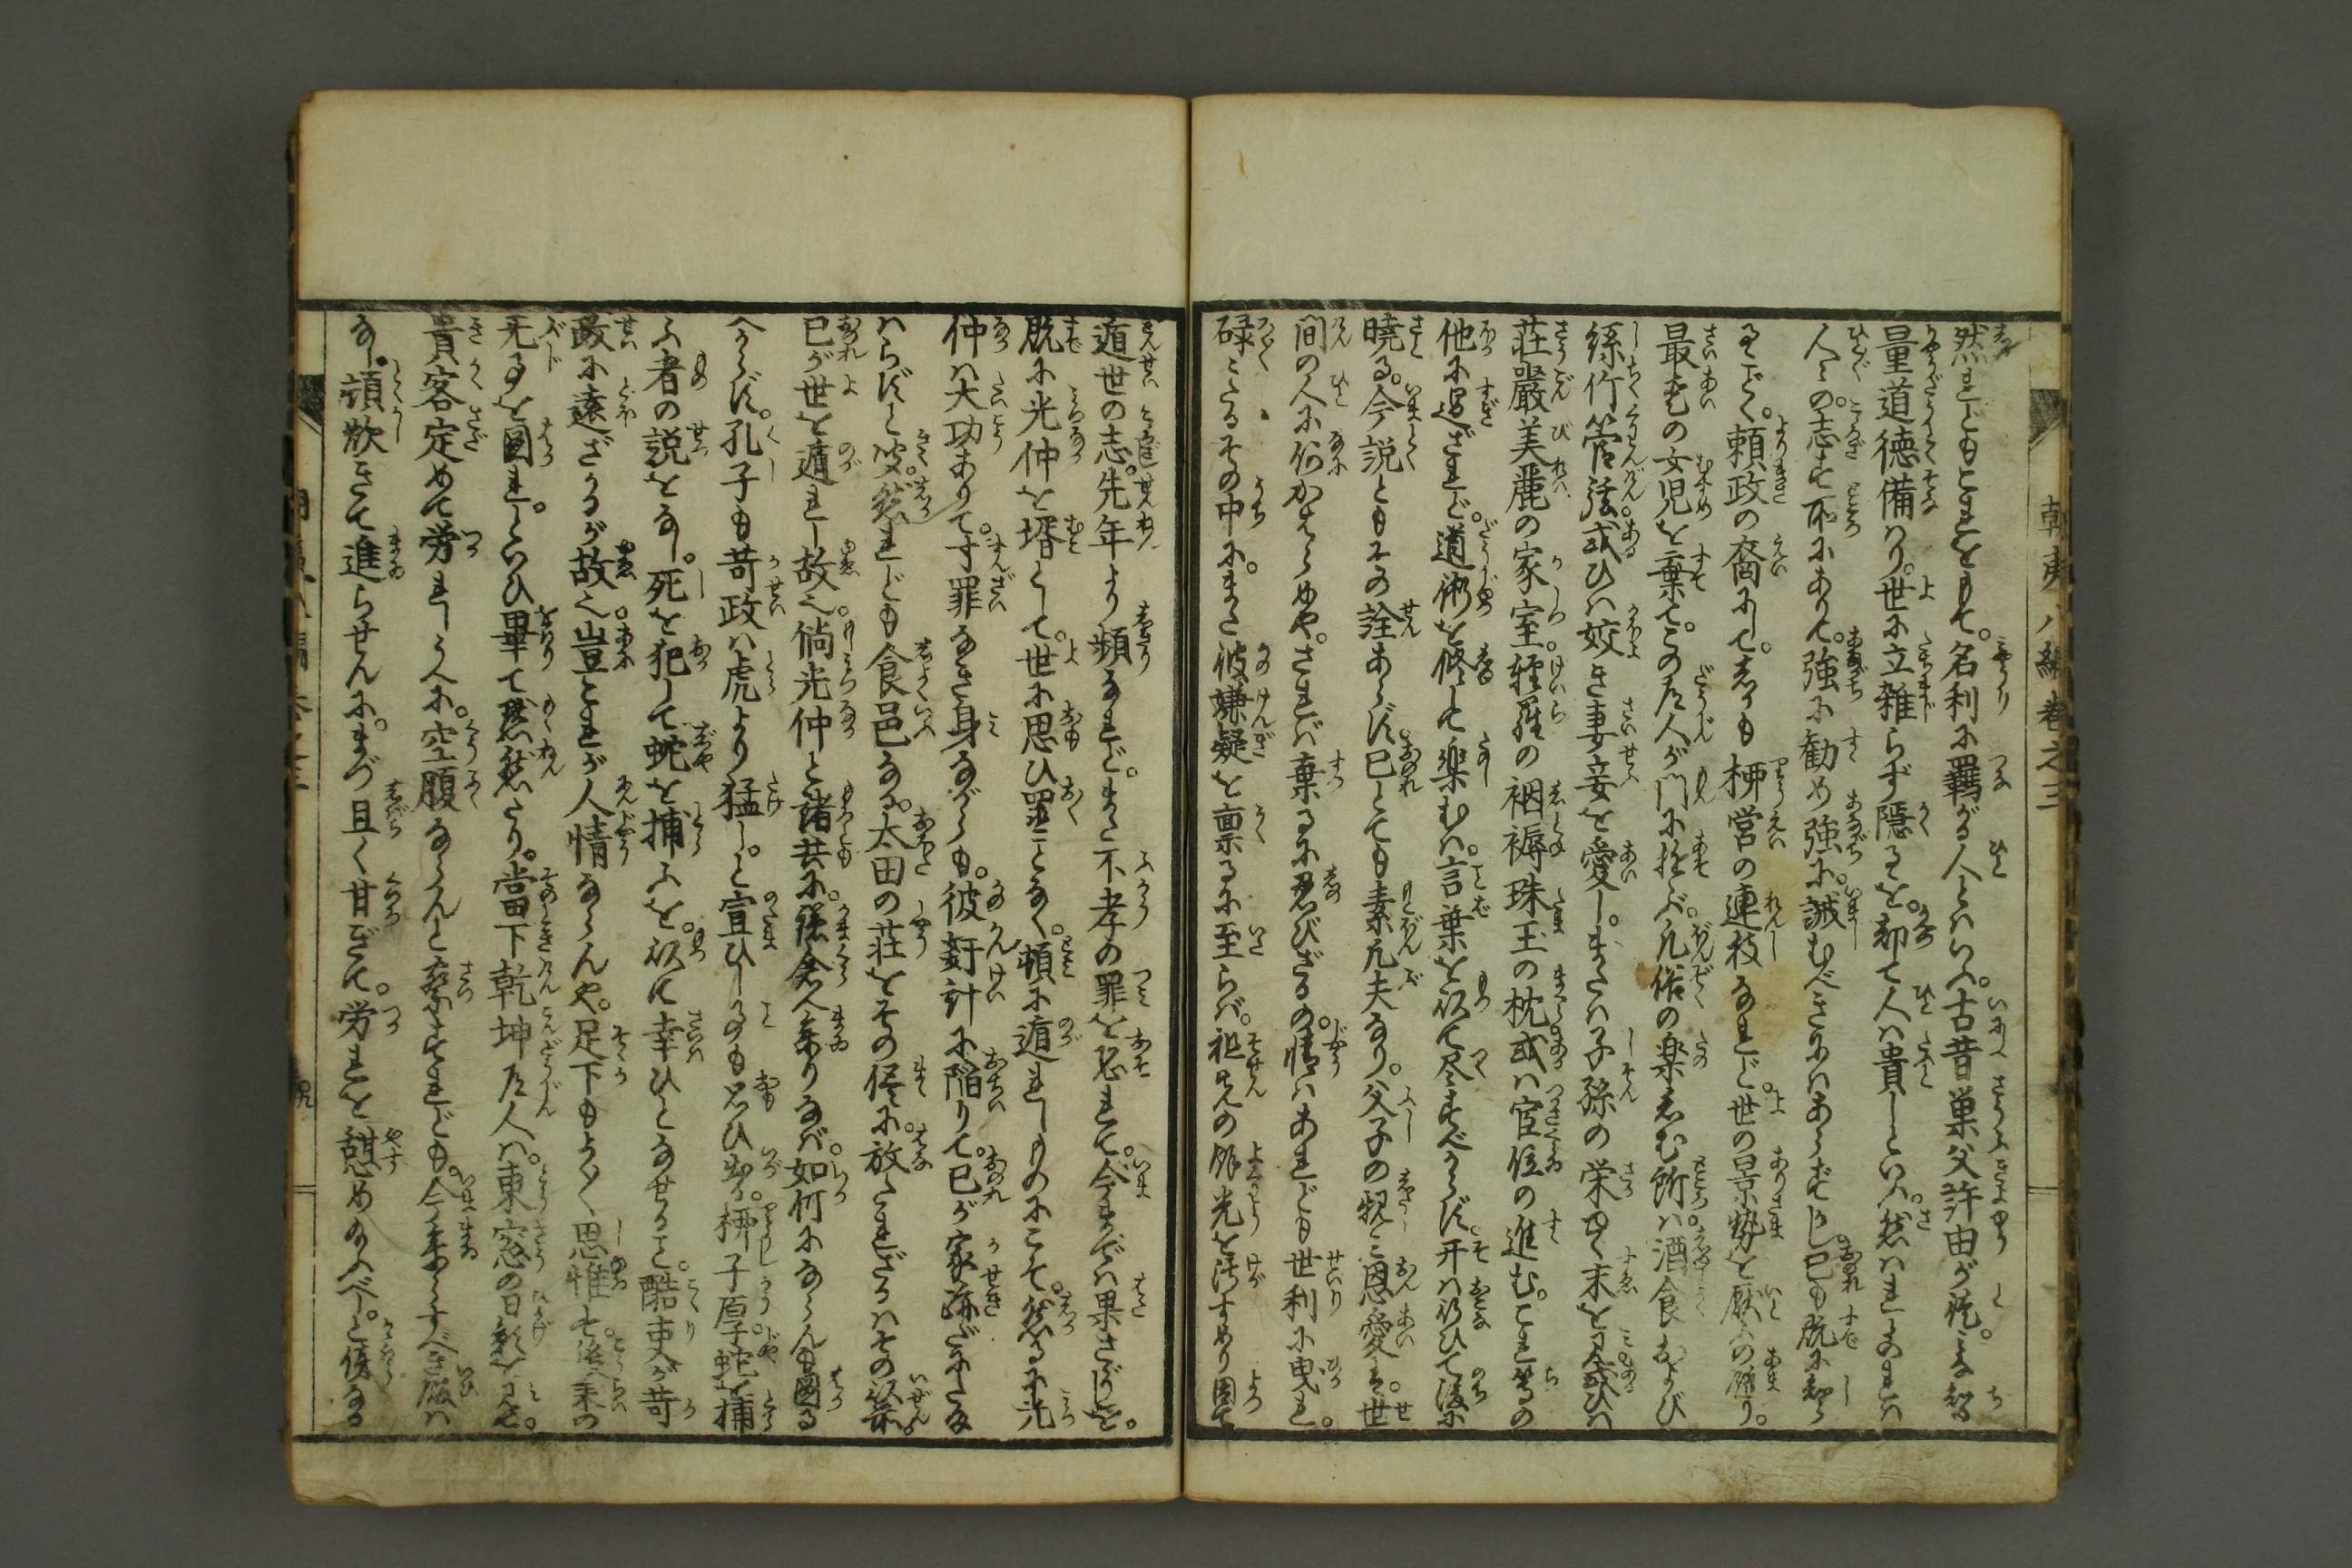 朝夷八編巻之三
然れどもこれをもて。名利に羈がる人とはいへ。古昔巣父許由が徒。みな智
量道徳備はり。世に立雑らず隠るを。却て人は貴しといへ。然はれよのれは
人々の。志す所にありて。強に勧め強に。誡むべきにはあらずかし己も既に知ら
るごく。頼政の裔にして。しかも柳営の連枝なれど。世の景勢を厭ふの餘り。
最愛の女児を棄て。この道人が門に遊ぶ。凡俗の楽しむ所は。酒食および
絲竹管弦。或ひは姣き妻妾を愛し。または子孫の栄ゆく末を見。或ひは
荘嚴美麗の家室。軽羅の裀褥珠玉の枕或は官位の進む。これ等の
他に過ざれど。道術を修して楽むは。言葉を以て尽すべからず。开は行ひて後に
曉る。今説ともその詮あらず。己とても素凡夫なり。父子の親み恩愛は。世
間の人に何かはらめや。されば棄るに忍びざるの。情はあれども世利に曳れ。
碌々たるその中に。また彼嫌疑を禀るに至らば。祖先の餘光を汚すめり因て
遁世の志。先年より頻なれど。また不孝の罪を怕れて。今までは果さゞりしを。
既に光仲を壻として。世に思ひ置ことなく。頓に遁れしものにこそ。然るに光
仲は大功ありて。寸罪なき身ながらも。彼奸計に陥りて。己が家跡だにたま
はらずと聞。然れども食邑なる。太田の荘をその侭に。放たれざるはその以前。
己が世を遁れし故也。倘光仲と諸共に。鎌倉へ参りなば。如何にならんも図る
べからず。孔子も苛政は虎より猛し。と宣ひしことも思ひ出。柳子厚が蛇を捕
ふ者の説をなし。死を犯して蛇を捕ふを。以て幸ひとなせること。酷吏が苛
政に遠ざかるが故也。豈これが人情ならんや。足下もよく思惟せ。後来の
无事を図れ。といひ畢て黙然たり。當下乾坤道人は。東窓の日影を見て。
貴客定めて労れしうへに。空腹ならんと察すれども。今参らすべき飯は
なし。頓炊きて進らせんに。まづ且く甘ぎて。労れを憩めのふべし。と傍なる